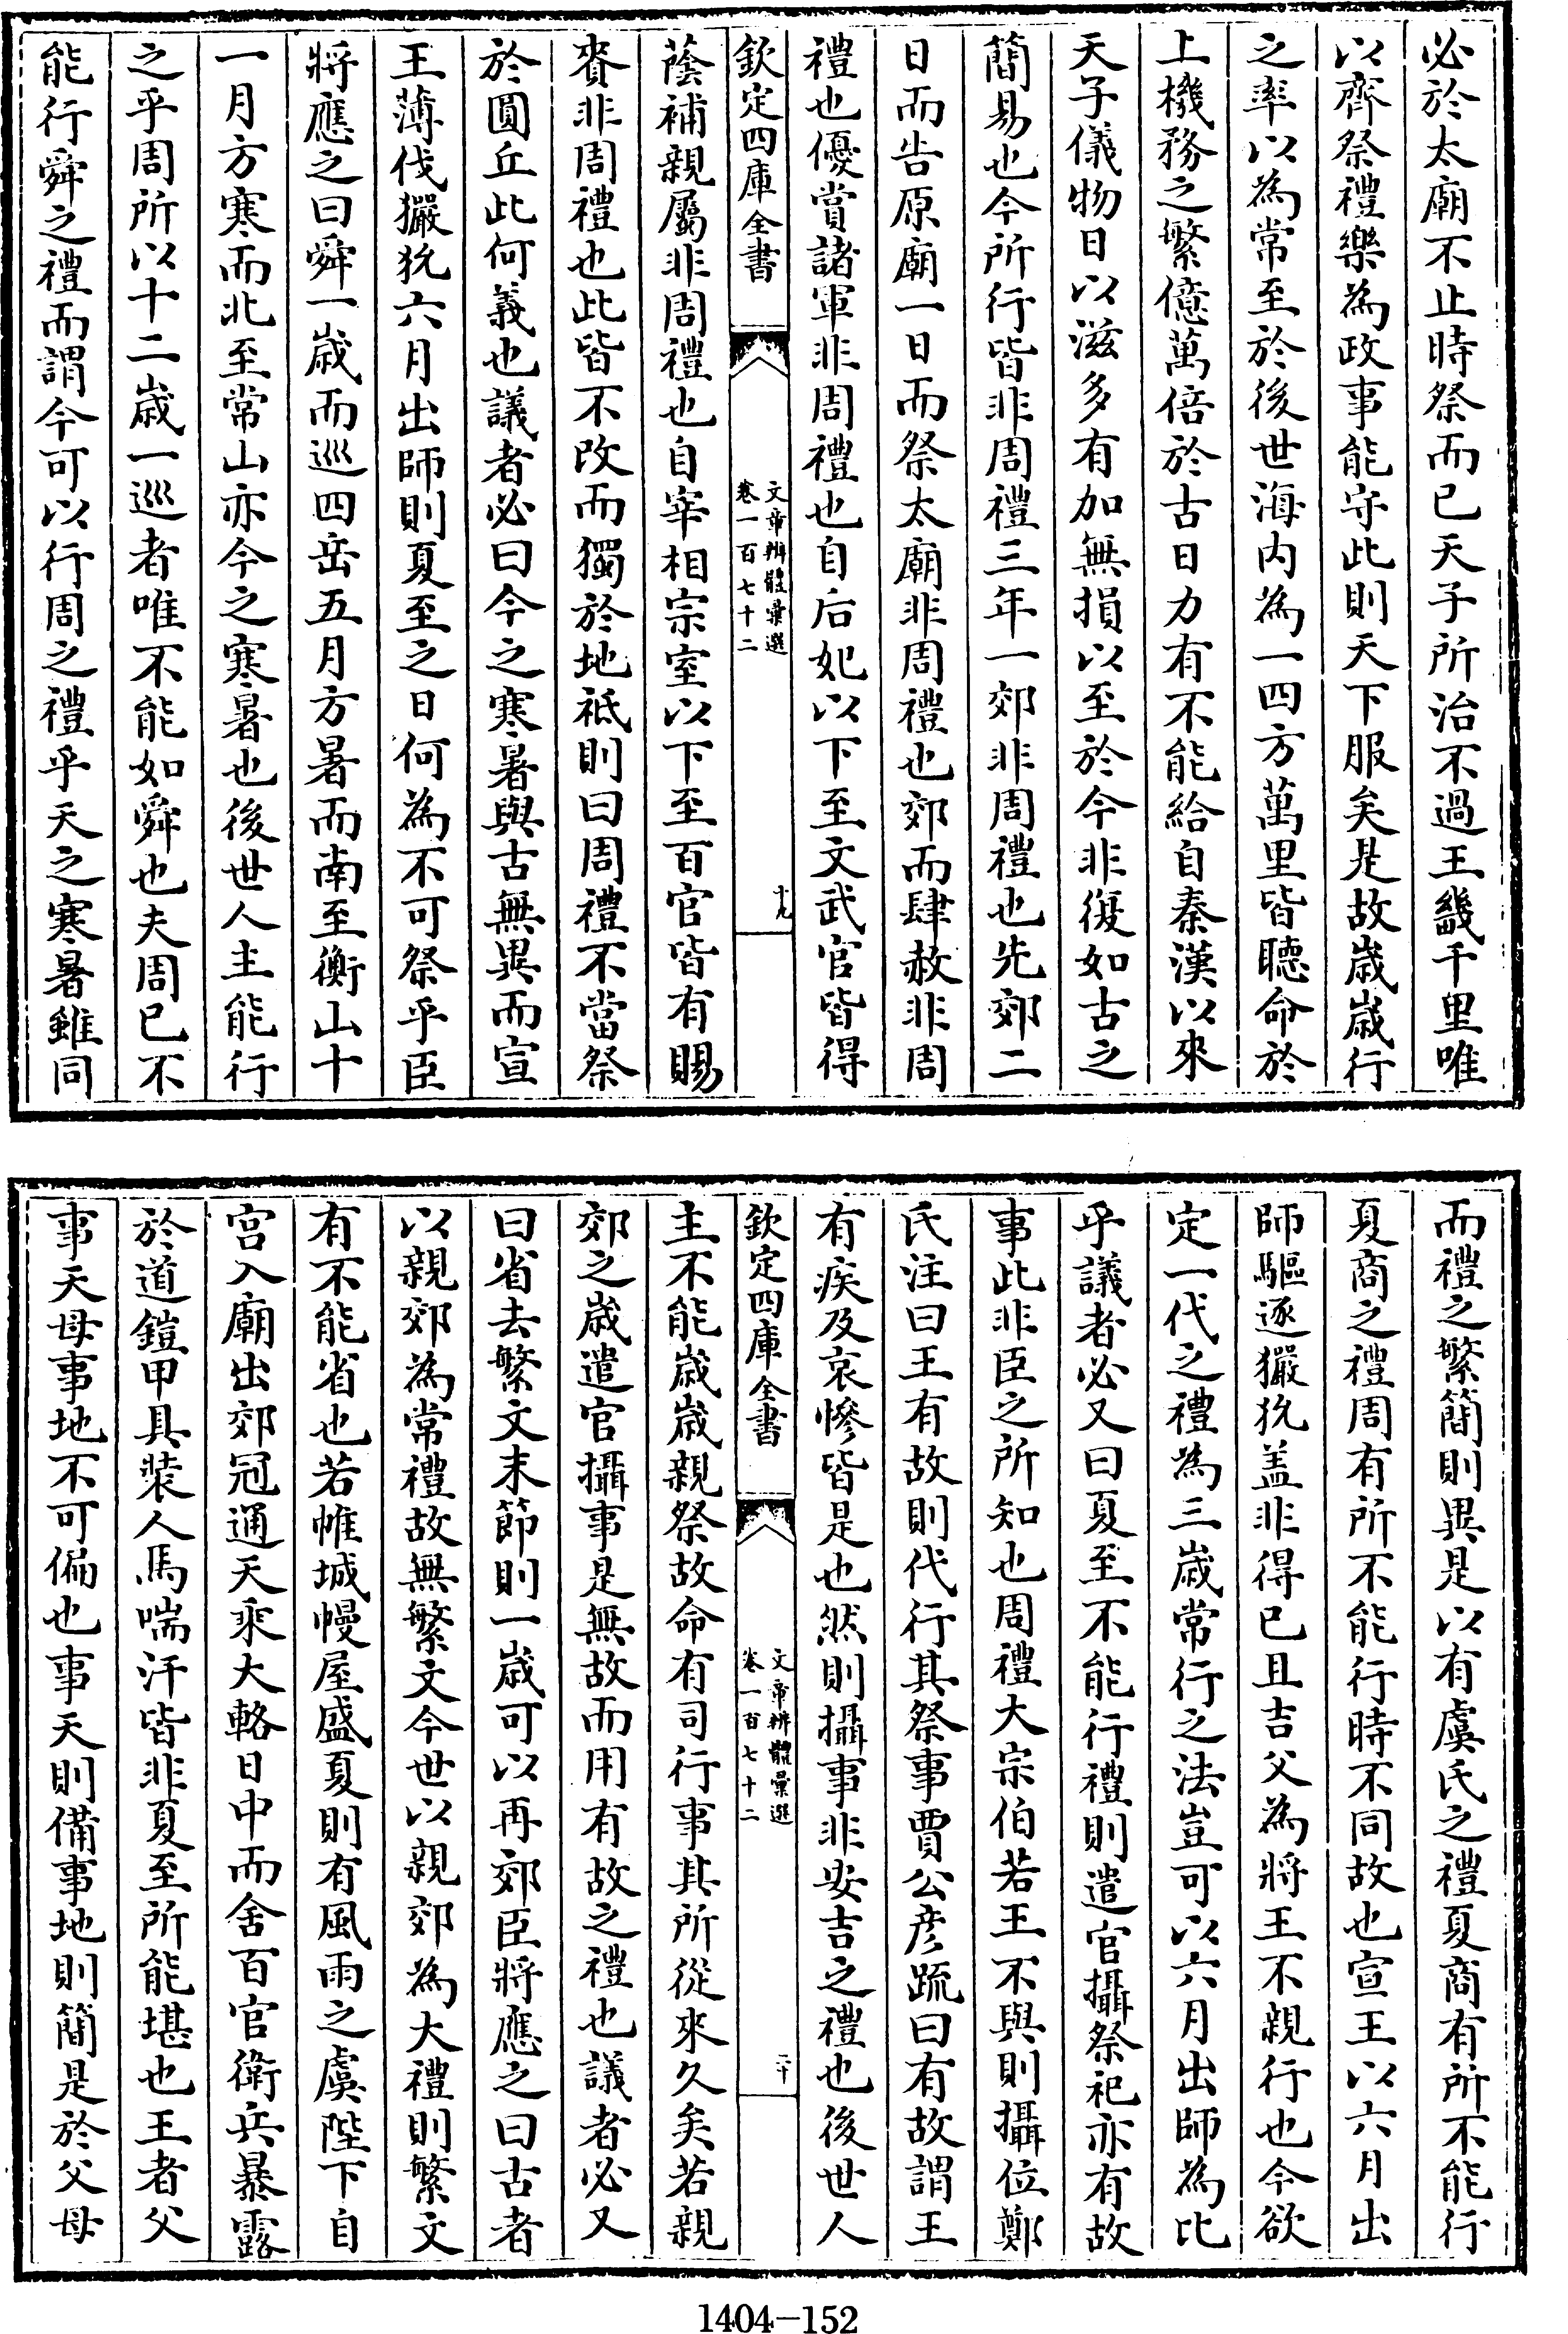 必於太廟不止時祭而已天子所治不過王畿千里唯
以齊祭禮樂為政事能守此則天下服矣是故嵗嵗行
之率以為常至於後世海内為一四方萬里皆聽命於
上機務之繁億萬倍於古日力有不能給自秦漢以來
天子儀物日以滋多有加無損以至於今非復如古之
簡易也今所行皆非周禮三年一郊非周禮也先郊二
日而告原廟一日而祭太廟非周禮也郊而肆赦非周
禮也優賞諸軍非周禮也自后妃以下至文武官皆得
欽定四庫全書
文章辨體彚選
卷一百七十二
十九
蔭補親屬非周禮也自宰相宗室以下至百官皆有賜
賚非周禮也此皆不改而獨於地祗則曰周禮不當祭
於圓丘此何義也議者必曰今之寒暑與古無異而宣
王薄伐玁狁六月出師則夏至之日何為不可祭乎臣
將應之曰舜一嵗而巡四岳五月方暑而南至衡山十
一月方寒而北至常山亦今之寒暑也後世人主能行
之乎周所以十二嵗一巡者唯不能如舜也夫周已不
能行舜之禮而謂今可以行周之禮乎天之寒暑雖同
而禮之繁簡則異是以有虞氏之禮夏商有所不能行
夏商之禮周有所不能行時不同故也宣王以六月出
師驅逐玁狁盖非得已且吉父為將王不親行也今欲
定一代之禮為三嵗常行之法豈可以六月出師為比
乎議者必又曰夏至不能行禮則遣官攝祭祀亦有故
事此非臣之所知也周禮大宗伯若王不與則攝位鄭
氏注曰王有故則代行其祭事賈公彦疏曰有故謂王
有疾及哀慘皆是也然則攝事非安吉之禮也後世人
欽定四庫全書
文章辨體彚選
卷一百七十二
二十
主不能嵗嵗親祭故命有司行事其所從來久矣若親
郊之嵗遣官攝事是無故而用有故之禮也議者必又
曰省去繁文末節則一嵗可以再郊臣將應之曰古者
以親郊為常禮故無繁文今世以親郊為大禮則繁文
有不能省也若帷城幔屋盛夏則有風雨之虞陛下自
宫入廟出郊冠通天乘大輅日中而舍百官衛兵暴露
於道鎧甲具装人馬喘汗皆非夏至所能堪也王者父
事天母事地不可偏也事天則備事地則簡是於父母
1404-152